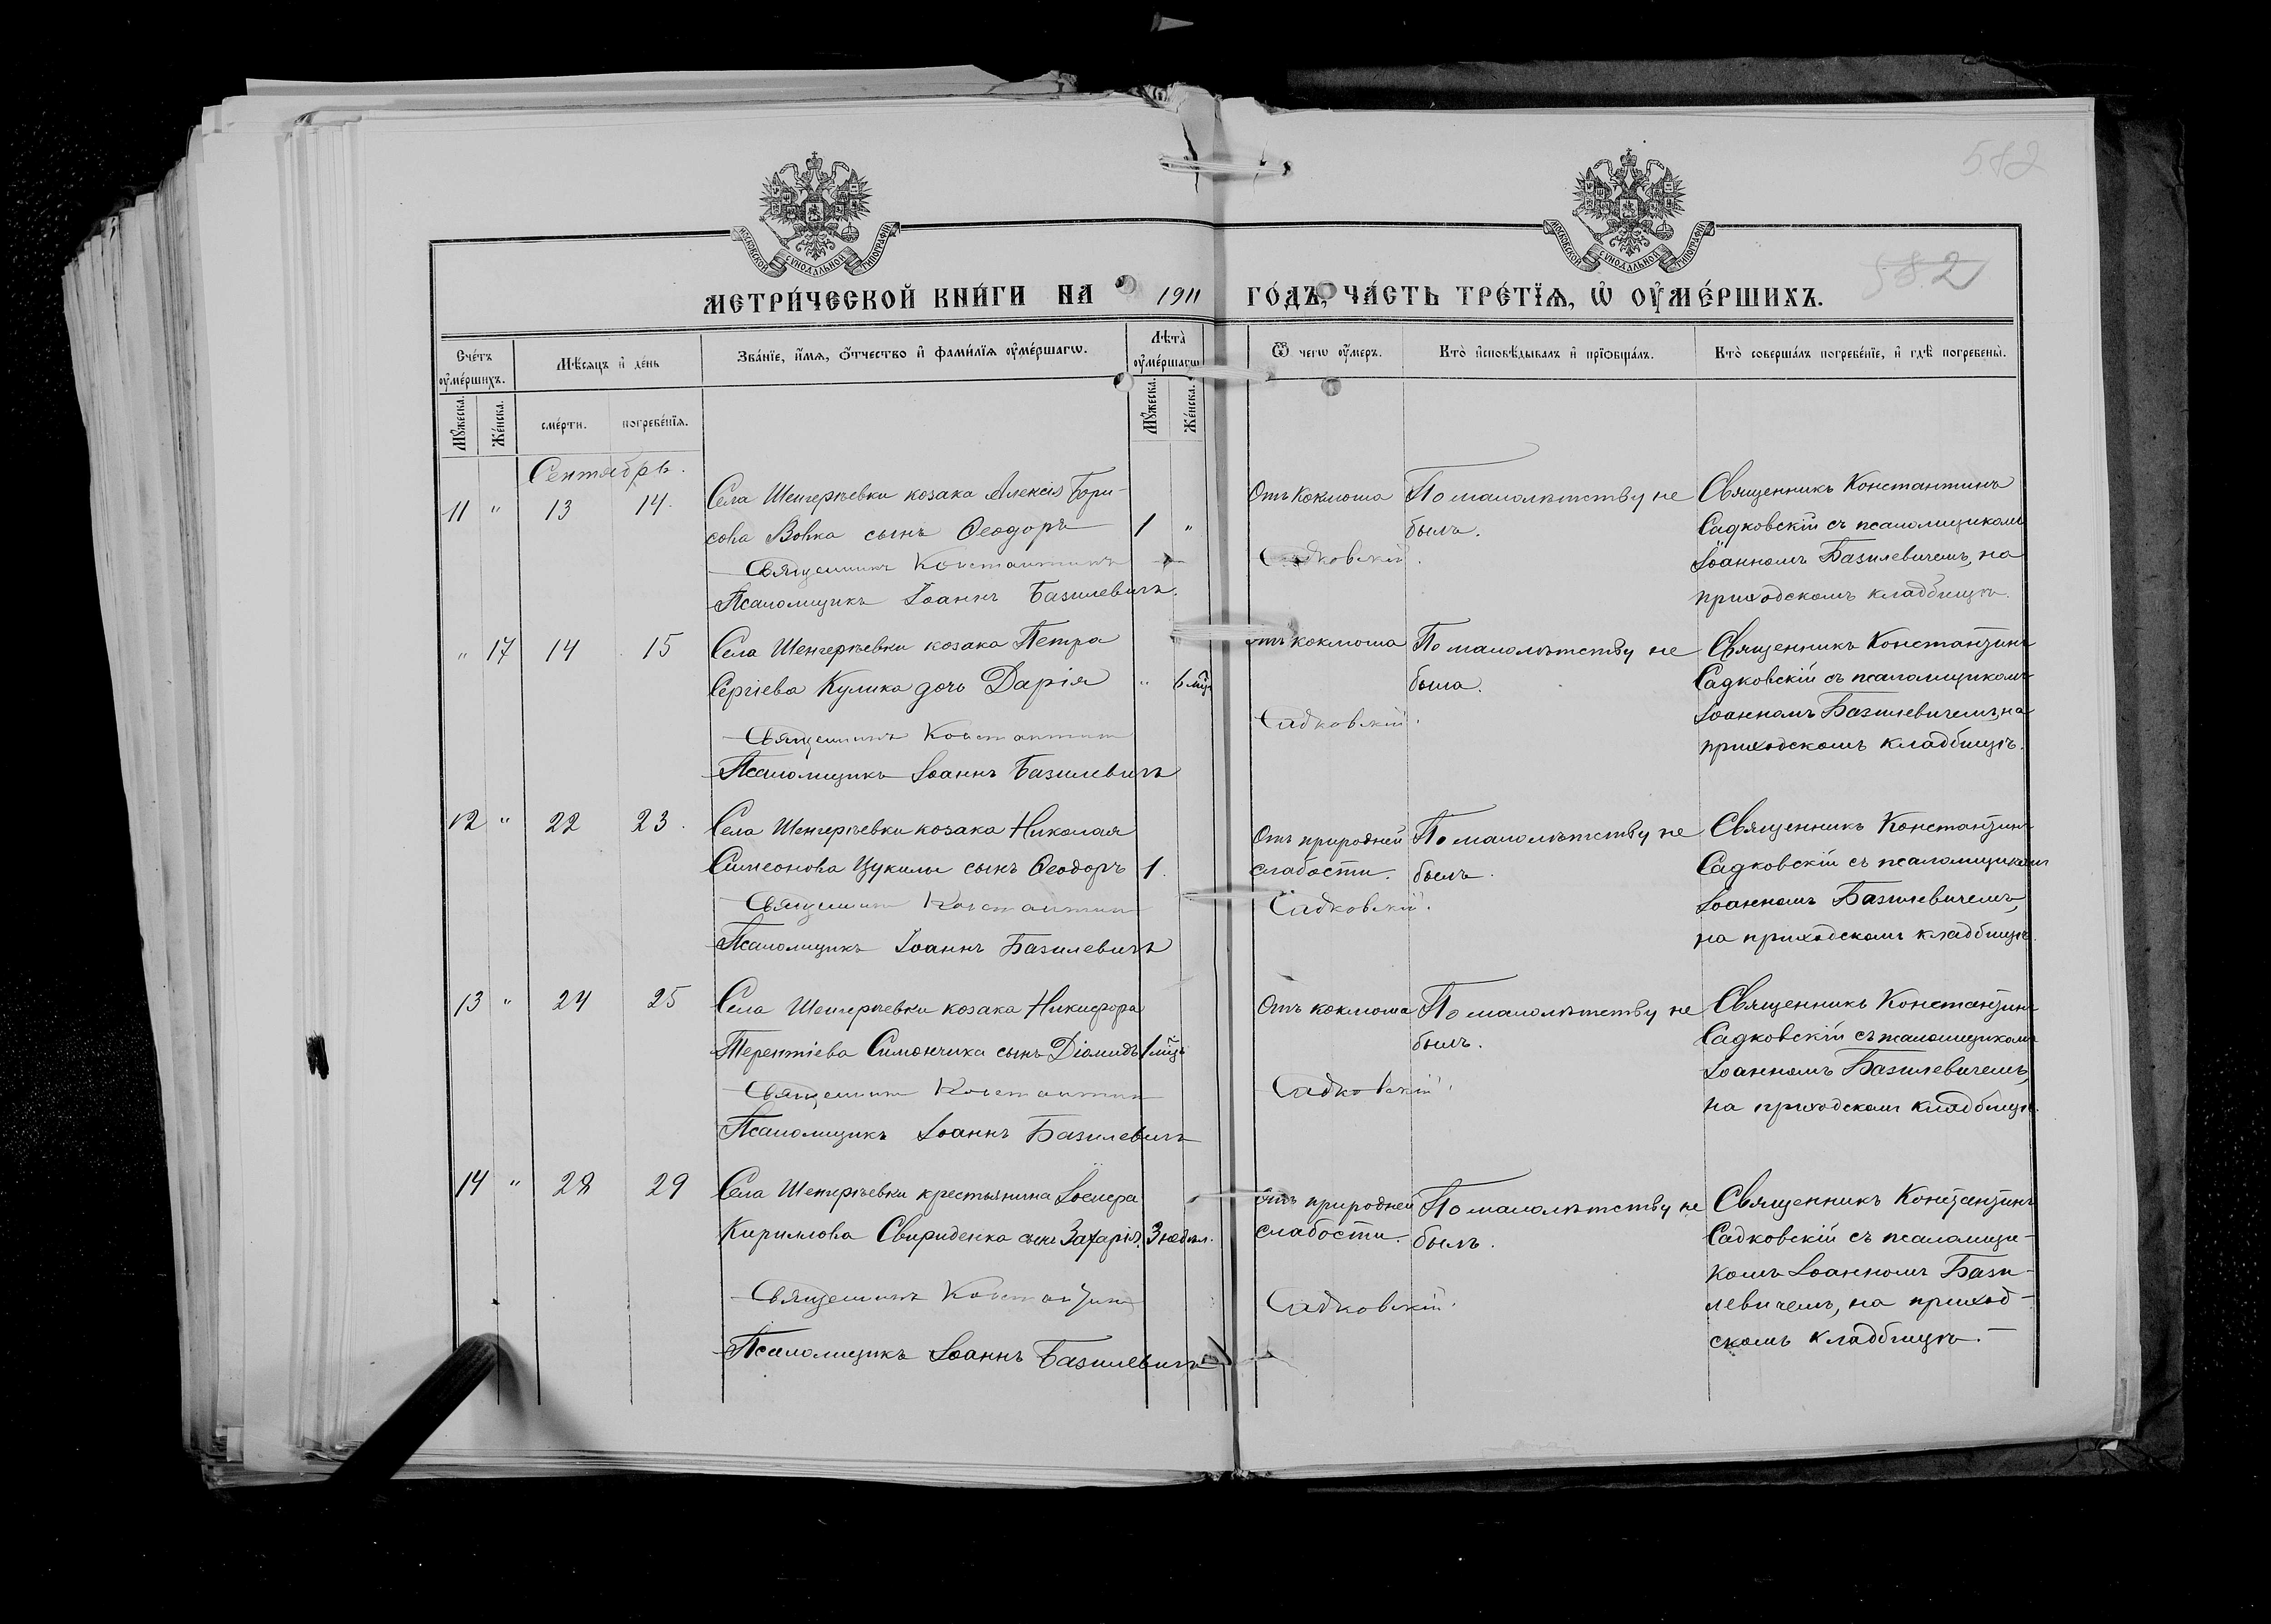 582
МОСКОВСКОЙ СѴНОДАЛЬНОЙ ТИПОГРАФІИ
МОСКОВСКОЙ СѴНОДАЛЬНОЙ ТИПОГРАФІИ
582
МЕТРИ́ЧЕСКОЙ КНИ́ГИ НА 1911 ГО́ДЪ, ЧА́СТЬ ТРЕ́ТЇѦ, Ѡ҆ ОУ҆МЕ́РШИХЪ.
Сче́тъ оу҆ме́ршихъ.
Мѣ́сяцъ и҆ де́нь
Зва́нїе, и҆́мѧ, ѻ҆́тчество и҆ фами́лїѧ оу҆ме́ршагѡ.
Лѣ̑та̀ оу҆ме́ршагѡ
Ѿ чегѡ̀ оу҆́меръ.
Кто̀ и҆сповѣ́дывалъ и҆ прїѡбща́лъ.
Кто̀ соверша́лъ погребе́нїе, и҆ гдѣ̀ погребены̀.
Мꙋ́жеска.
Же́нска.
сме́рти.
погребе́нїѧ.
Мꙋ́жеска.
Же́нска.
Сентябрь.
11 " 13 14.
Села Шенгерѣевки козака Алексія Бори-
сова Вовка сынъ Ѳеодоръ 1 "
Священникъ Константинъ Садковскій.
Псаломщикъ Іоаннъ Базилевичъ.
Отъ коклюша
По малолѣтству не
былъ.
Священникъ Константинъ
Садковскій съ псаломщикомъ
Іоанномъ Базилевичемъ, на
приходскомъ кладбищѣ.
" 17 14 15
Села Шенгерѣевки козака Петра
Сергіева Кулика дочь Дарія " 6 мцъ
Священникъ Константинъ Садковскій.
Псаломщикъ Іоаннъ Базилевичъ
Отъ коклюша
По малолѣтству не
была.
Священникъ Константинъ
Садковскій съ псаломщикомъ
Іоанномъ Базилевичемъ, на
приходскомъ кладбищѣ.
12 " 22 23.
Села Шенгерѣевки козака Николая
Симеонова сынъ Ѳеодоръ 1.
Священникъ Константинъ Садковскій.
Псаломщикъ Іоаннъ Базилевичъ
Отъ природней
слабости.
По малолѣтству не
былъ.
Священникъ Константинъ
Садковскій съ псаломщикомъ
Іоанномъ Базилевичемъ,
на приходскомъ кладбищѣ.
13 " 24 25
Села Шенгерѣевки козака Никифора
Терентіева Симончика сынъ Діомидъ 1 мцъ
Священникъ Константинъ Садковскій.
Псаломщикъ Іоаннъ Базилевичъ
Отъ коклюша
По малолѣтству не
былъ.
Священникъ Константинъ
Садковскій съ псаломщикомъ
Іоанномъ Базилевичемъ,
на приходскомъ кладбищѣ.
14 " 28 29
Села Шенгерѣевки крестьянина Іосифа
Кириллова Свириденка сынъ Захарія. 3 недѣл.
Священникъ Константинъ Садковскій.
Псаломщикъ Іоаннъ Базилевичъ
Отъ природней
слабости.
По малолѣтству не
былъ.
Священникъ Константинъ
Садковскій съ псаломщи-
комъ Іоанномъ Бази-
левичемъ, на приход-
скомъ кладбищѣ.